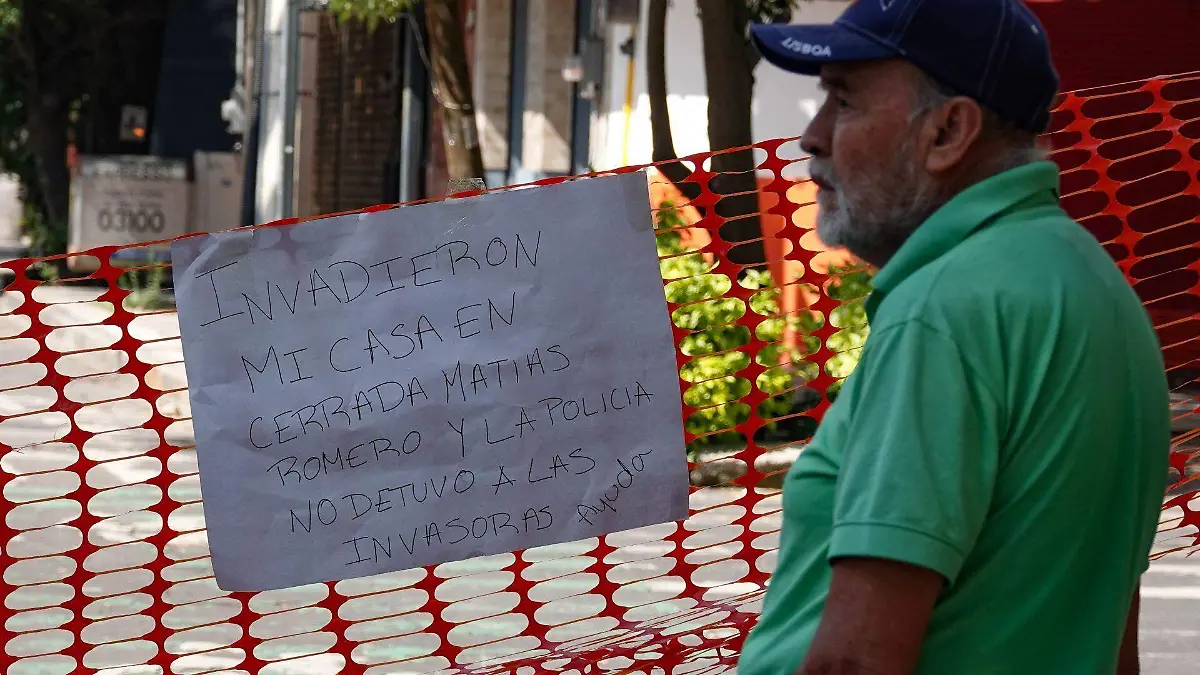 LISBOA
03100
INVADIERON
MI CASA EN
CERRADA MATIAS
ROMERO Y LA POLICIA
NO DETUVO A LAS
INVASORAS